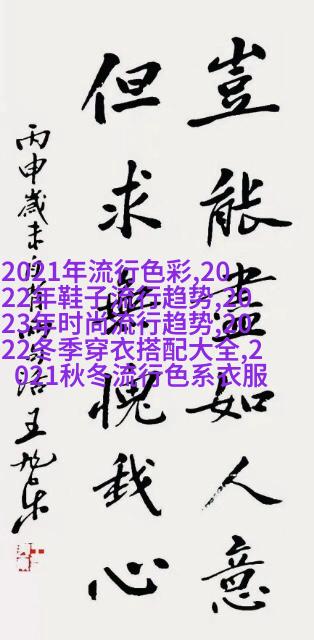 豈能盡如人意
但求無愧我心
丙申歲末 王旭东
2021年流行色彩,20
22年鞋子流行趋势,20
23年时尚流行趋势,20
22冬季穿衣搭配大全,2
021秋冬流行色系衣服